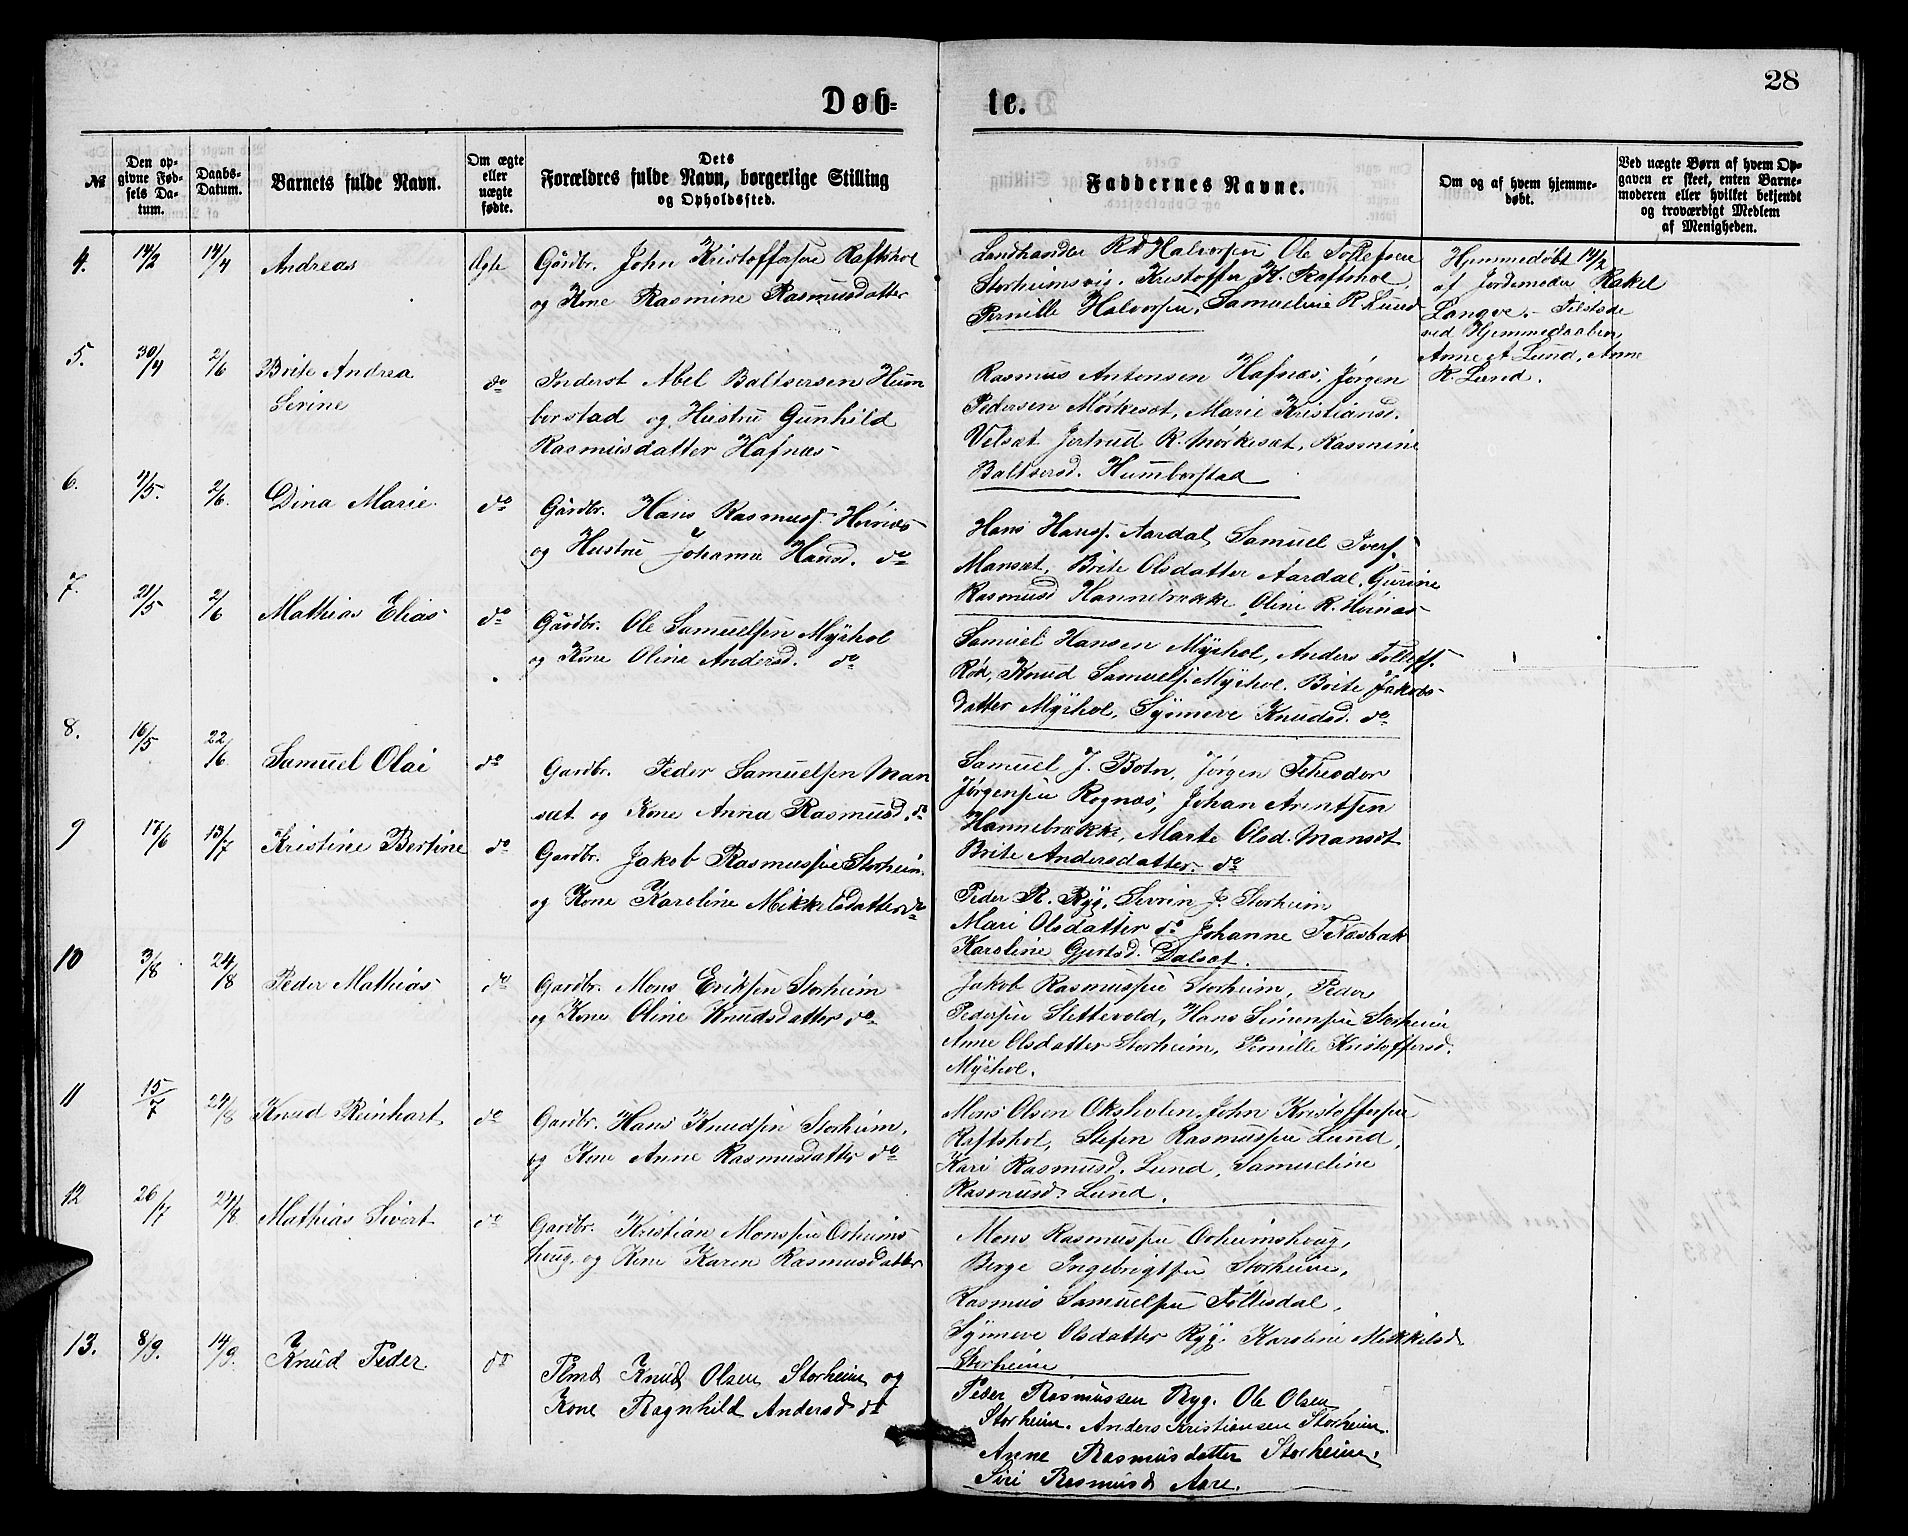 28
Døb=
te.
№
Den op-
givne Fød-
sels Da-
tum.
Daabs-
Datum.
Barnets fulde Navn.
Om ægte
eller
uægte
fødte.
Dets
Forældres fulde Navn, borgerlige Stilling
og Opholdssted.
Faddernes Navne.
Om og af hvem hjemme-
døbt.
Ved uægte Børn af hvem Op-
gaven er skeet, enten Barne-
moderen eller hvilket bekjendt
og troværdigt Medlem
af Menigheden.
4. 14/2 14/4 Andreas Ægte
Gårdbr. John Kristoffersen Raftshol
og Kone Rasmine Rasmusdatter
Landhandler R. Halvorsen Ole Tollefsen
Storheimsvig. Kristoffer K. Raftshol
Pernille Halvorsen, Samueline R. Lund
Hjemmedøbt 14/2
af Jordemoder Rakel
Langve. - Tilstede
ved Hjemmedaaben
Anne A. Lund, Anne
R. Lund.
5. 30/4 2/6 Brite Andrea
Serine
do
Inderst Abel Baltsersen Hum
borstad og Hustru Gunhild
Rasmusdatter Hafnæs
Rasmus Antonsen Hafnæs, Jørgen
Pedersen Mørkesæt, Marie Kristiansd.
Velsæt Jertrud R. Mørkesæt, Rasmine
Baltsersd. Humborstad
6. 4/5. 2/6. Dina Marie. do
Gårdbr. Hans Rasmuss. Hovnæs
og Hustru Johanna Hansd. do
Hans Hanss. Aardal, Samuel Ivers.
Mansæt, Brite Olsdatter Aardal, Gurine
Rasmusd Hannebrække, Oline R. Hovnæs
7. 21/5 2/6 Mathias Elias do
Gårdbr. Ole Samuelsen Myrhol
og Kone Oline Andersd. do
Samuel Hansen Myrhol, Anders Tollefs.
Knud Samuels. Myrhol. Brite Jakobs-
datter Myrhol, Synneve Knudsd. do
8. 16/5 22/6. Samuel Olai do
Gardbr. Peder Samuelsen Man
sæt og Kone Anna Rasmusd. do
Samuel J. Botn, Jørgen Theodor
Jørgensen Rognæs, Johan Arentsen
Hannebrække, Marte Olsd. Mansæt
Brite Andersdatter. do
9 17/6 13/7 Kristine Bertine do
Gardbr. Jakob Rasmussen Storheim
og Kone Karoline Mikkelsdatter do
Peder R. Ryg, Sevrin J. Storheim
Mari Olsdatter do Johanne T. Næsbak
Karoline Gjertsd. Dalsæt.
10 3/8 24/8 Peder Mathias do
Gardbr. Mons Eriksen Storheim
og Kone Oline Knudsdatter do
Jakob Rasmussen Storheim, Peder
Pedersen Slettevold, Hans Simensen Storheim
Anne Olsdatter Storheim, Pernille Kristoffersd.
Myrhol.
11 15/7 24/8 Knud Reinhart do
Gardbr. Hans Knudsen Storheim,
og Kone Anne Rasmusdatter do
Mons Olsen Oksholen, John Kristoffersen
Raftshol, Stefen Rasmussen Lund,
Kari Rasmusd. Lund, Samueline
Rasmusd. Lund.
12 26/7 24/8. Mathias Sivert do
Gardbr. Kristian Monssen Orheims-
houg, og Kone Karen Rasmusdatter
Mons Rasmussen Orheimshoug,
Berge Ingebrigtsen Storheim,
Rasmus Samuelsen Tollisdal,
Synneve Olsdatter Ryg, Karoline Mikkelsd
Storheim
13. 8/9. 14/9. Knud Peder. do
Knud Olsen Storheim og
Kone Ragnhild Andersd do
Peder Rasmussen Ryg. Ole Olsen
Storheim. Anders Kristiansen Storheim.
Anne Rasmusdatter Storheim.
Siri Rasmusd Aare.